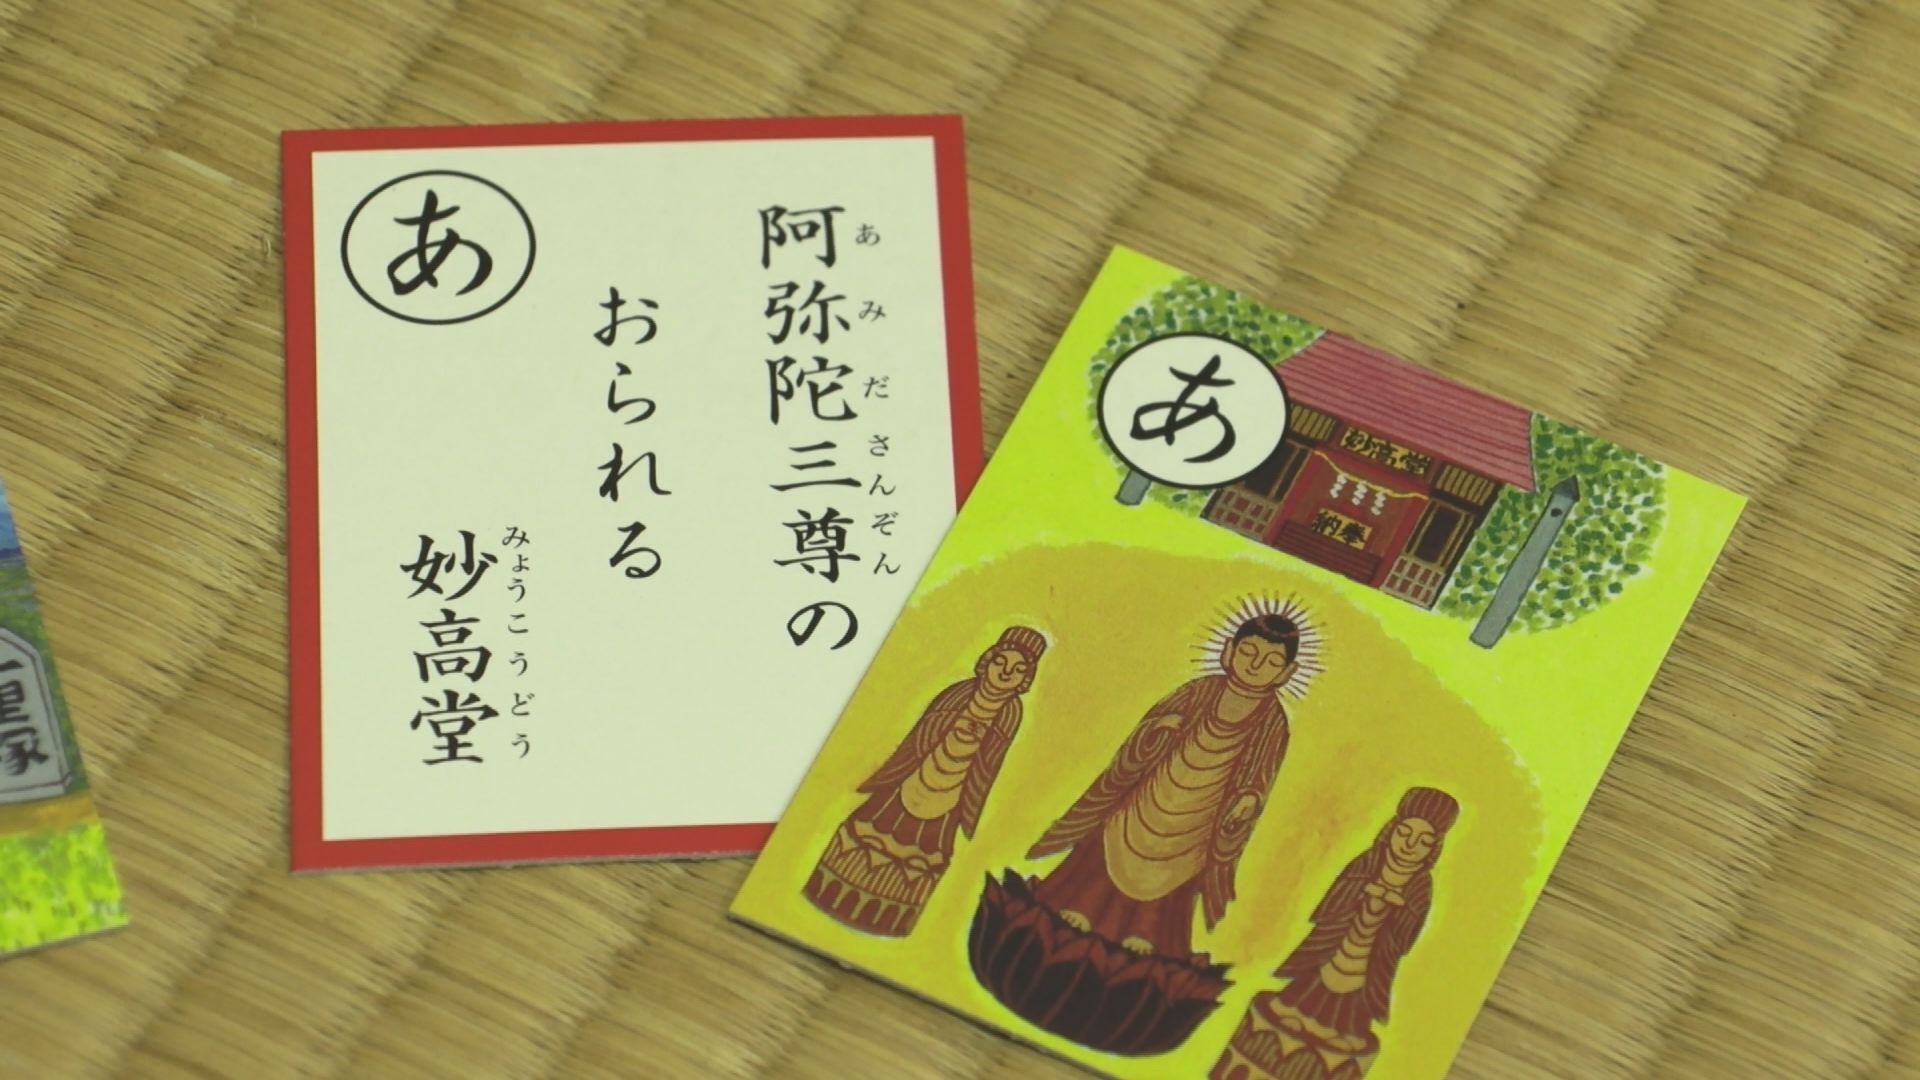 あ
阿弥陀三尊の
あみださんぞん
おられる
妙高堂
みょうこうどう
あ
妙高堂
納奉
里塚